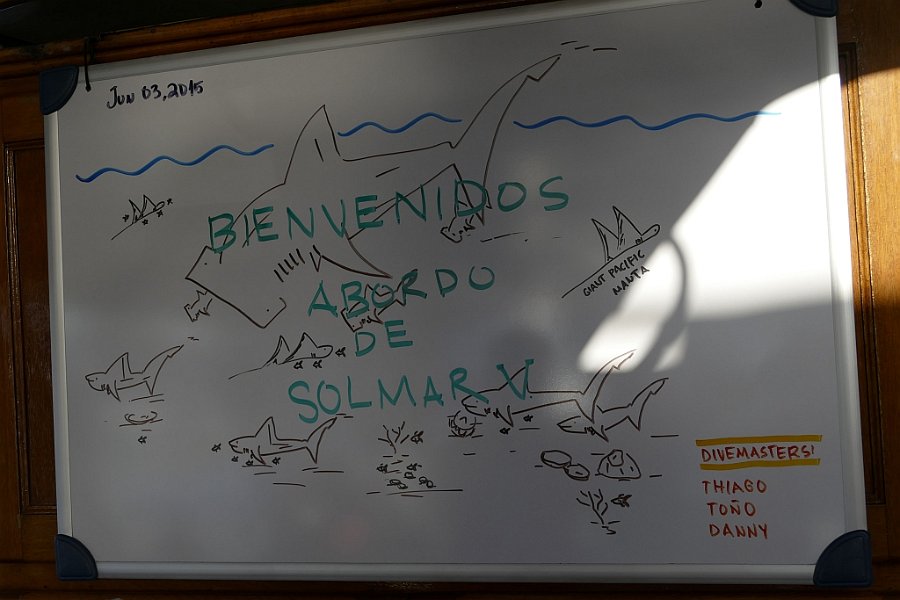 Jun 03, 2015
BIENVENIDOS
ABORDO
DE
SOLMAR V
GIANT PACIFIC
MANTA
DIVEMASTERS:
THIAGO
TOÑO
DANNY